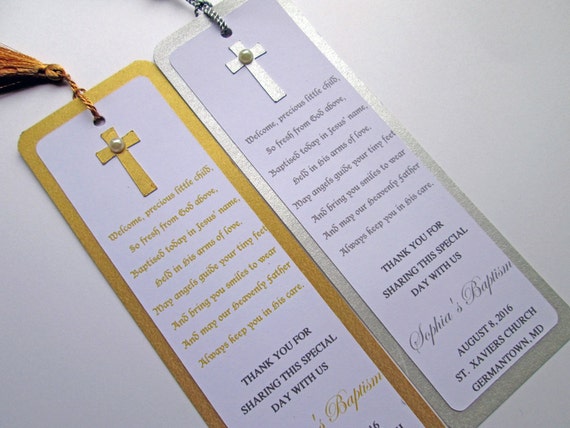 Welcome, precious little child,
So fresh from God above,
Baptised today in Jesus' name,
Held in His arms of love.
May angels guide your tiny feet
And bring you smiles to wear
And may our Heavenly Father
Always keep you in his care.
THANK YOU FOR
SHARING THIS SPECIAL
DAY WITH US
Sophia's Baptism
Welcome, precious little child,
So fresh from God above,
Baptised today in Jesus' name,
Held in His arms of love.
May angels guide your tiny feet
And bring you smiles to wear
And may our Heavenly Father
Always keep you in his care.
THANK YOU FOR
SHARING THIS SPECIAL
DAY WITH US
Sophia's Baptism
AUGUST 8, 2016
ST. XAVIERS CHURCH
GERMANTOWN, MD